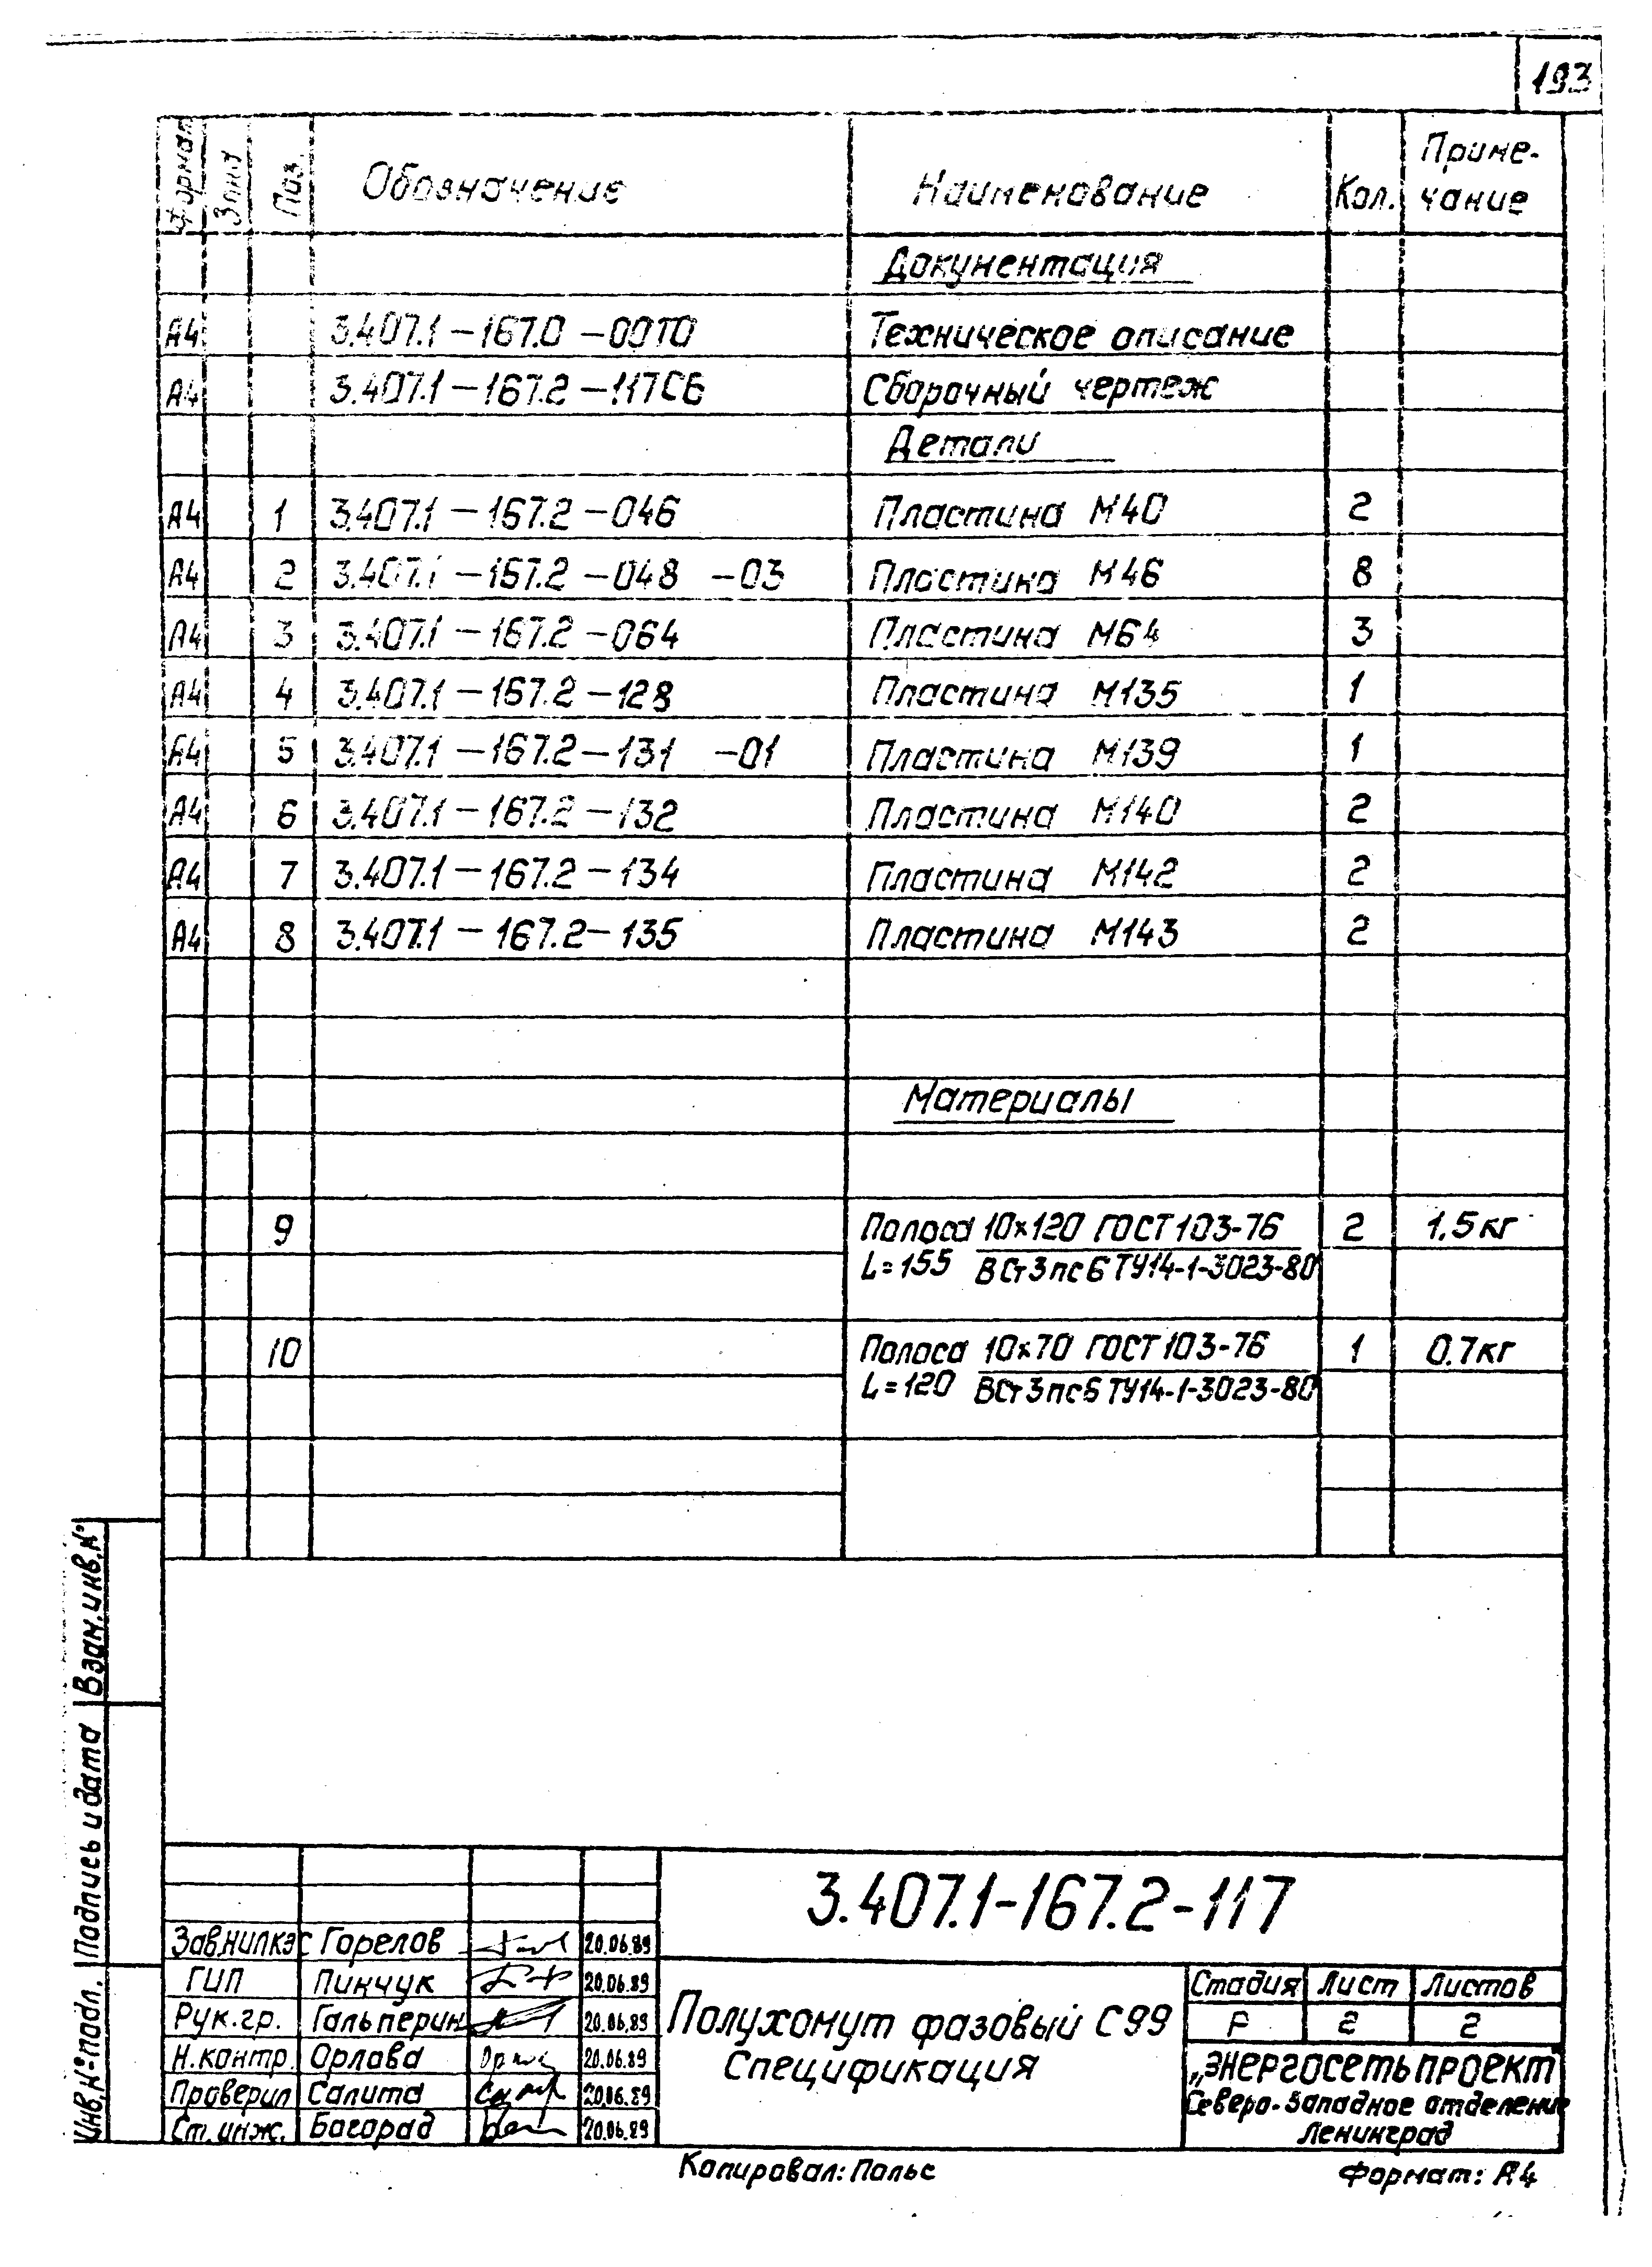 193
Формат Зона Поз. Обозначение Наименование Кол. Приме-
чание
Документация
А4 3.407.1-167.0-00ТО Техническое описание
А4 3.407.1-167.2-117СБ Сборочный чертеж
Детали
А4 1 3.407.1-167.2-046 Пластина М40 2
А4 2 3.407.1-167.2-048 -03 Пластина М46 8
А4 3 3.407.1-167.2-064 Пластина М64 3
А4 4 3.407.1-167.2-128 Пластина М135 1
А4 5 3.407.1-167.2-131 -01 Пластина М139 1
А4 6 3.407.1-167.2-132 Пластина М140 2
А4 7 3.407.1-167.2-134 Пластина М142 2
А4 8 3.407.1-167.2-135 Пластина М143 2
Материалы
9 Полоса 10×120 ГОСТ 103-76 2 1,5 кг
L=155 ВСт3пс6 ТУ14-1-3023-80
10 Полоса 10×70 ГОСТ 103-76 1 0.7 кг
L=120 ВСт3пс6 ТУ14-1-3023-80
Взам.инв.№
Подпись и дата
Инв.№подл.
3.407.1-167.2-117
Зав.НИЛКЭС Горелов 20.06.89
ГИП Пинчук 20.06.89
Рук.гр. Гальперин 20.06.89
Н.контр. Орлова 20.06.89
Проверил Салита 20.06.89
Ст.инж. Багорад 20.06.89
Полухомут фазовый С99
Спецификация
Стадия Лист Листов
Р 2 2
„ЭНЕРГОСЕТЬПРОЕКТ"
Северо-Западное отделение
Ленинград
Копировал: Польс
Формат: А4